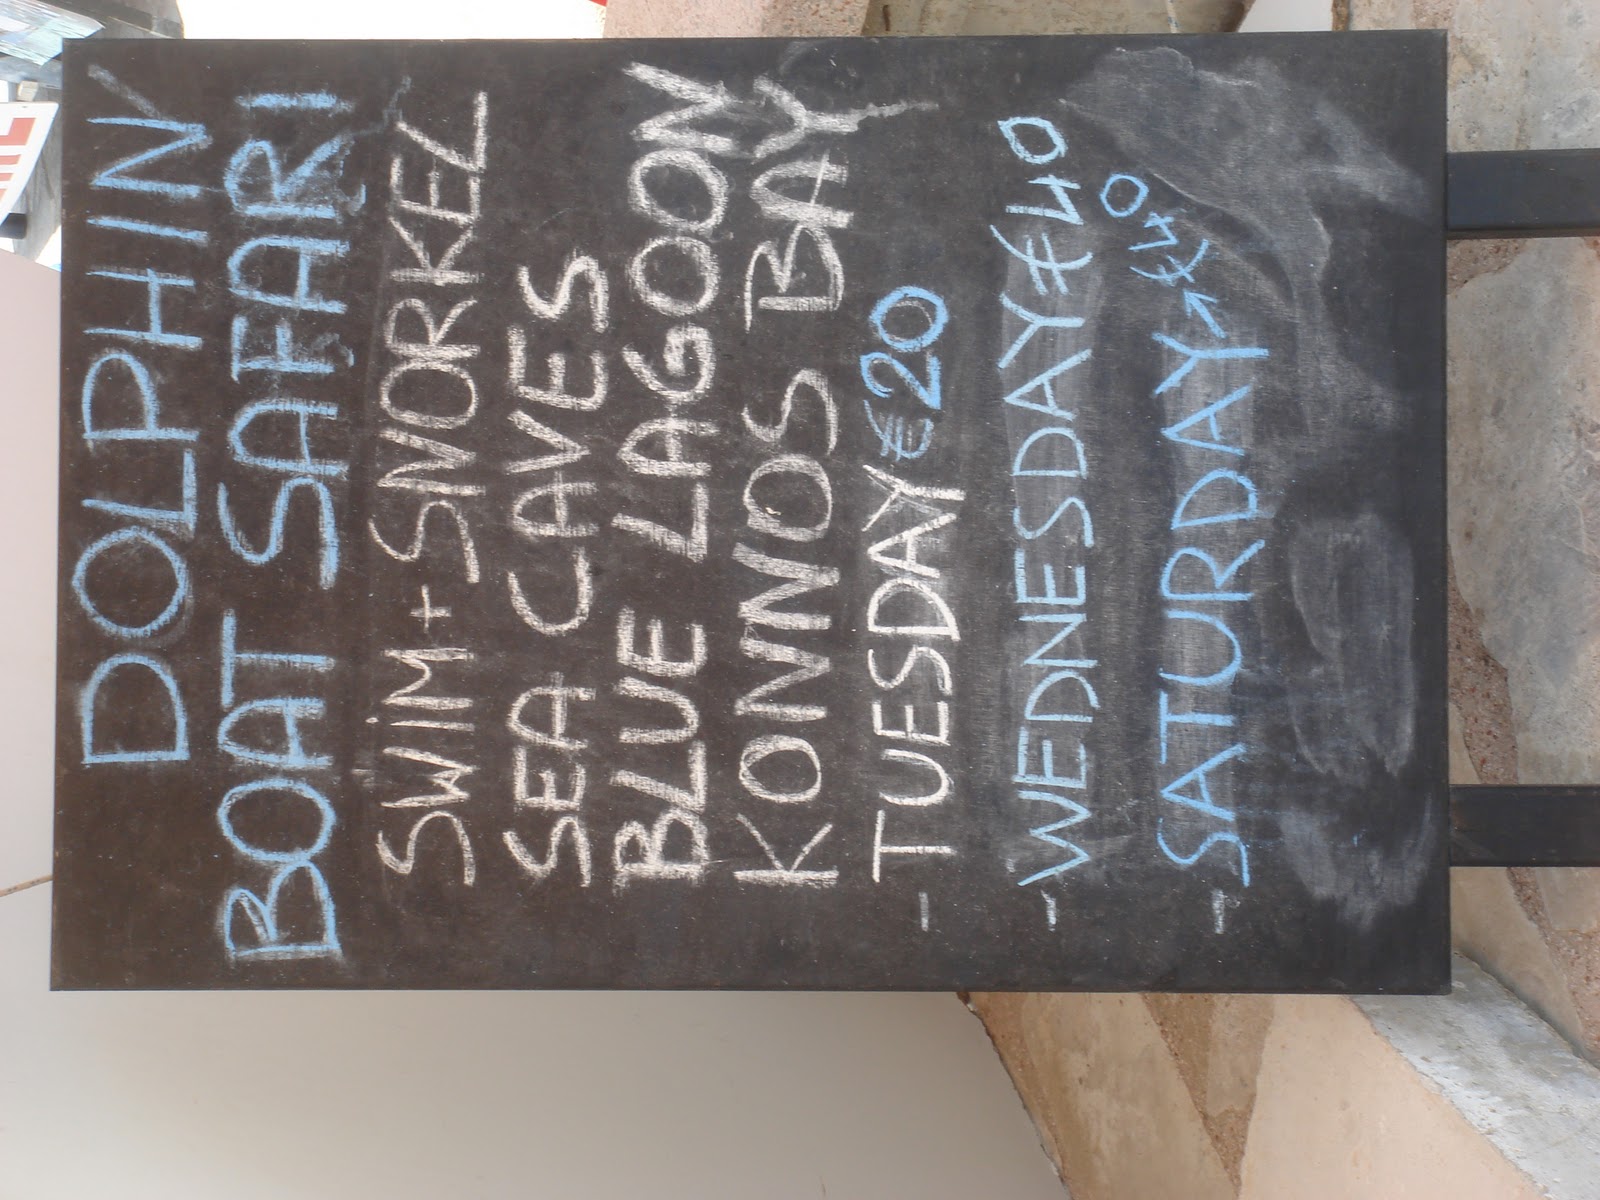 DOLPHIN
BOAT SAFARI
SWIM + SNORKEL
SEA CAVES
BLUE LAGOON
KONNOS BAY
- TUESDAY €20
- WEDNESDAY €40
- SATURDAY → €40